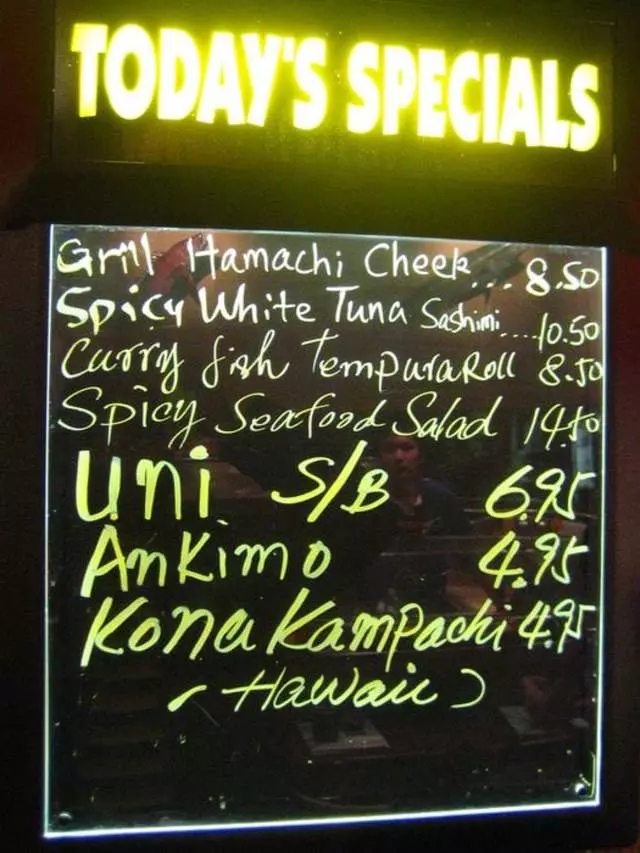 TODAY'S SPECIALS
Grill Hamachi Cheek... 8.50
Spicy White Tuna Sashimi....10.50
Curry fish Tempura Roll 8.50
Spicy Seafood Salad 14.50
Uni S/B 6.95
Ankimo 4.95
Kona Kampachi 4.95
(Hawaii)